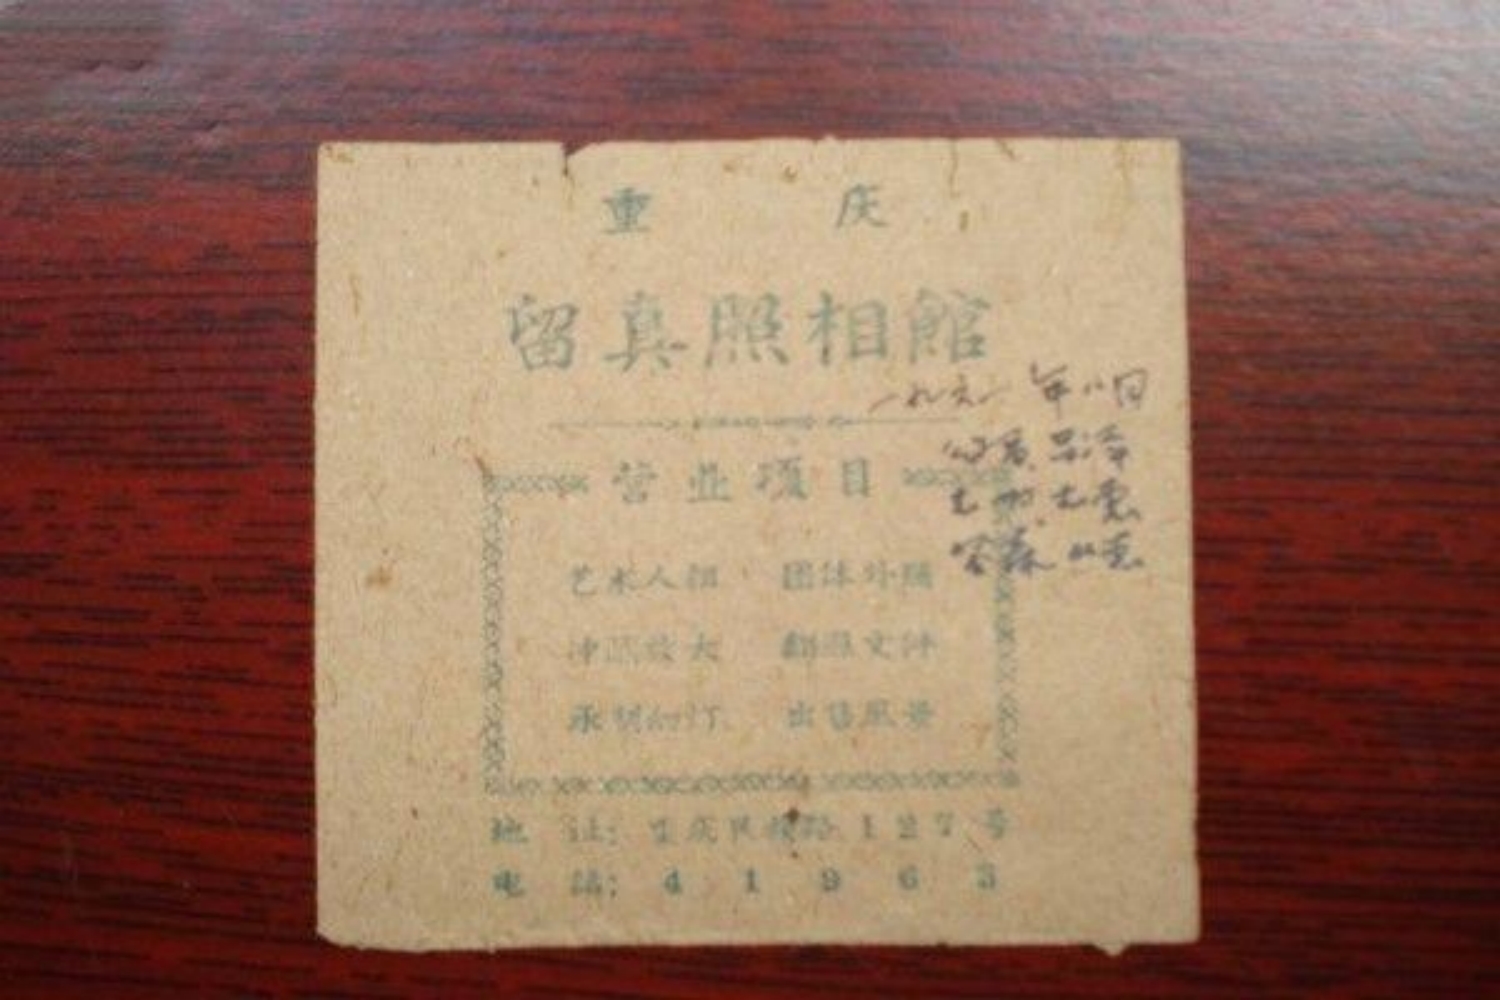 重 庆
留真照相館
一九六一年八月
营业项目
艺术人相 团体外照
冲晒放大 翻照文件
承制幻灯 出售风景
地 址: 重庆民权路127号
电 話: 41963